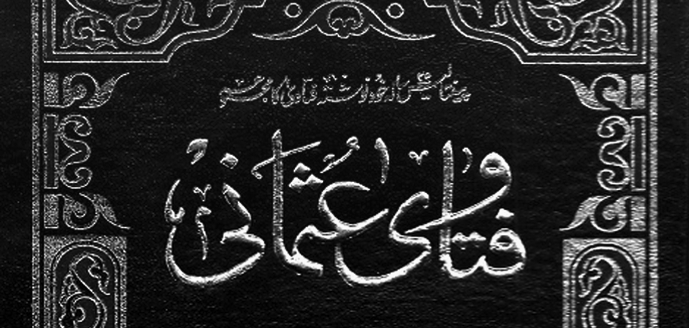 پینتالیس سالہ خود نوشتہ فتاویٰ کا مجموعہ
فتاویٰ عثمانی